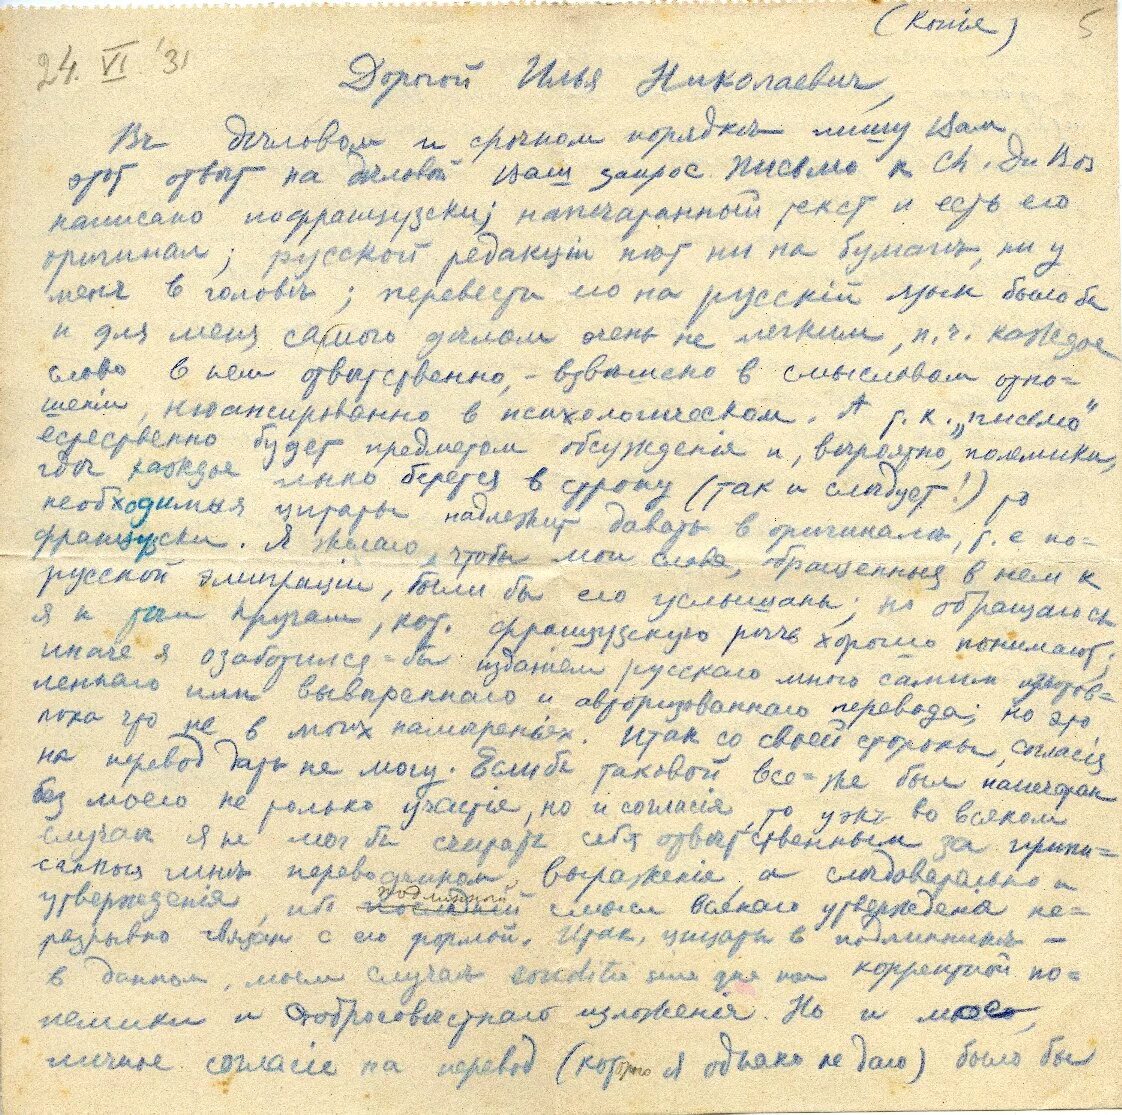 (Копія) 5
24. VI '31
Дорогой Илья Николаевич,
Въ дѣловом и срочном порядкѣ пишу Вам
этот отвѣт на дѣловой Ваш запрос. Письмо к Ch. Du Bos
написано пофранцузски; напечатанный текст и есть его
оригинал; русской редакціи нѣт ни на бумагѣ, ни у
меня в головѣ; перевести его на русскій язык было бы
и для меня самого дѣлом очень не легким, п. ч. каждое
слово в нем отвѣтственно, – взвѣшено в смысловом отно=
шеніи, нюансированно в психологическом. А т. к. „письмо"
естественно будет предметом обсужденія и, вѣроятно, полемики,
гдѣ каждое лыко берется в строку (так и слѣдует!) то
необходимыя цитаты надлежит давать в оригиналѣ, т. е по-
французски. Я желаю, чтобы мои слова, обращенныя в нем к
русской эмиграціи, были бы ею услышаны; но обращаюсь
я к тѣм кругам, кот. французскую рѣчь хорошо понимают;
иначе я озаботился=бы изданіем русскаго мною самим изготов=
леннаго или вывѣреннаго и авторизованнаго перевода; но это
пока что не в моих намѣреніях. Итак со своей стороны, согласія
на перевод дать не могу. Если бы таковой все=же был напечатан
без моего не только участія, но и согласія, то ужъ во всяком
случаѣ я не мог бы считать себя отвѣтственным за припи=
санныя мнѣ переводчиком выраженія, а слѣдовательно и
утвержденія, ибо подлинный смысл всякаго утвержденія не=
разрывно связан с его формой. Итак, цитаты в подлинникѣ –
в данном, моем случаѣ conditio sine qua non корректной по=
лемики и добросовѣстнаго изложенія. Но и мое,
личное согласіе на перевод (которого я однако не даю) было бы